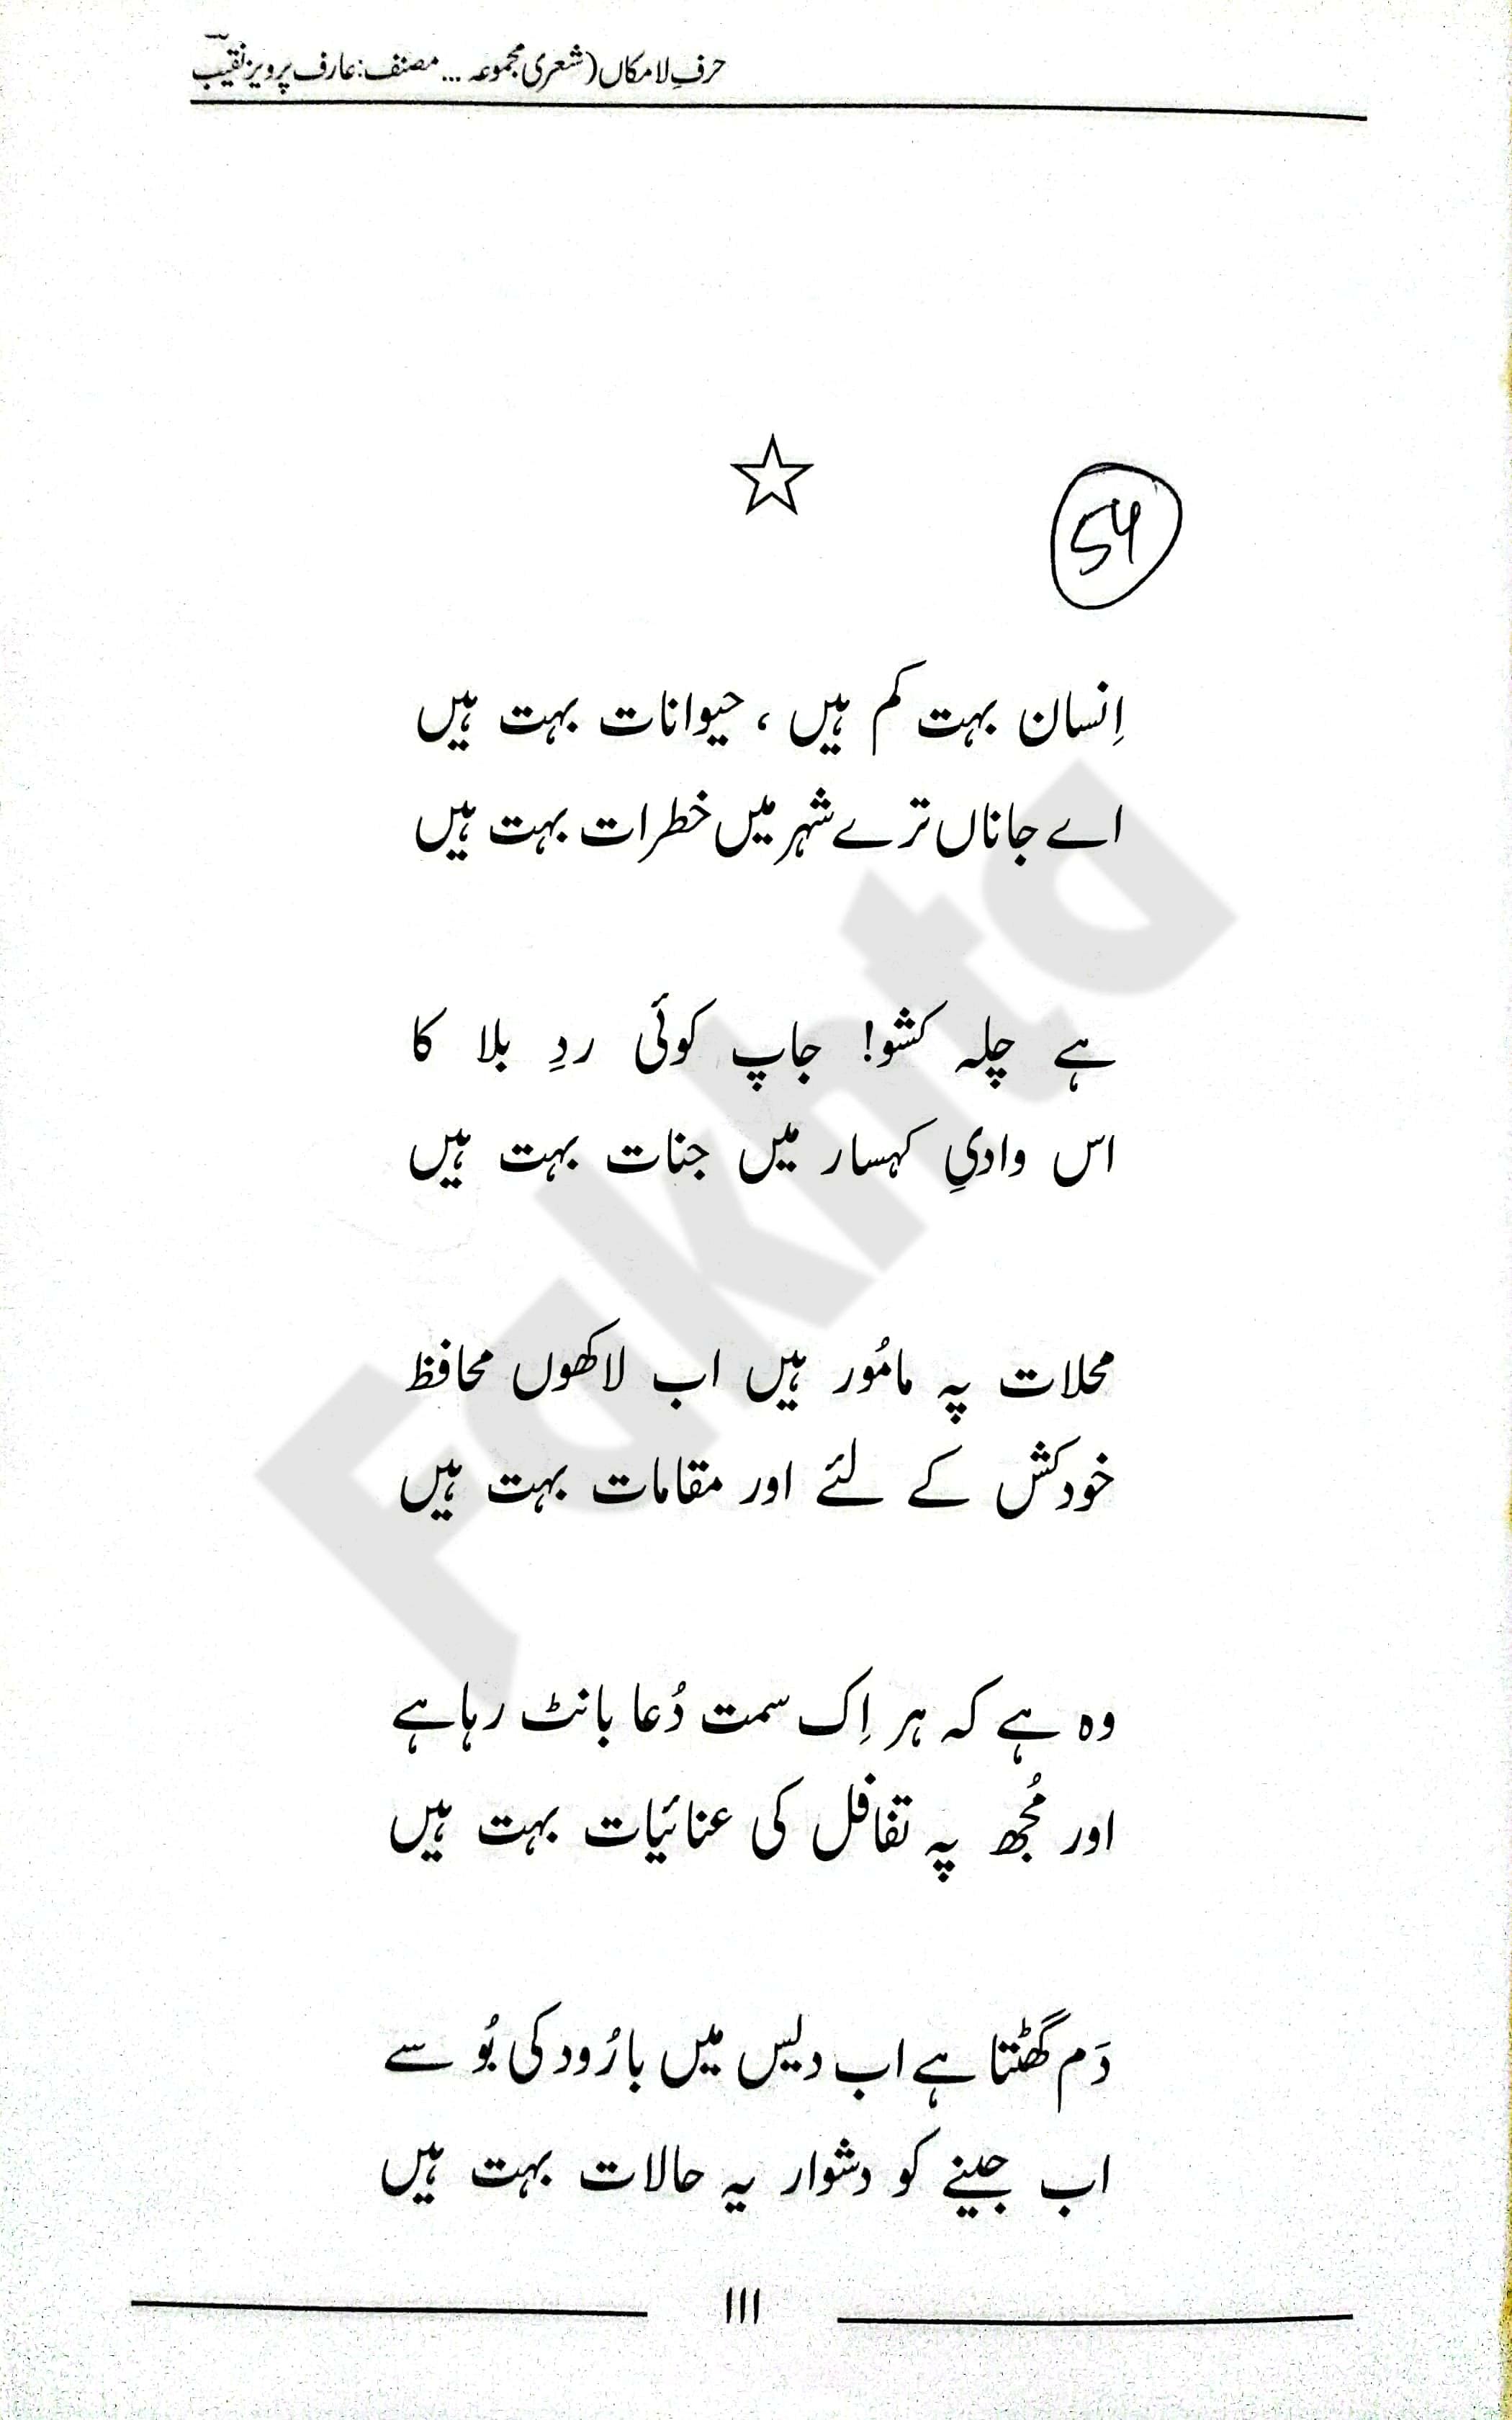 حرفِ لامکاں (شعری مجموعہ ... مصنف: عارف پرویز نقیبؔ
54
اِنسان بہت کم ہیں ، حیوانات بہت ہیں
اے جاناں ترے شہر میں خطرات بہت ہیں
ہے چلہ کشو! جاپ کوئی ردِ بلا کا
اس وادیِ کہسار میں جنات بہت ہیں
محلات پہ مامُور ہیں اب لاکھوں محافظ
خودکش کے لئے اور مقامات بہت ہیں
وہ ہے کہ ہر اِک سمت دُعا بانٹ رہا ہے
اور مُجھ پہ تفافل کی عنائیات بہت ہیں
دَم گھٹتا ہے اب دیس میں بارُود کی بُو سے
اب جینے کو دشوار یہ حالات بہت ہیں
۱۱۱
Fakhta